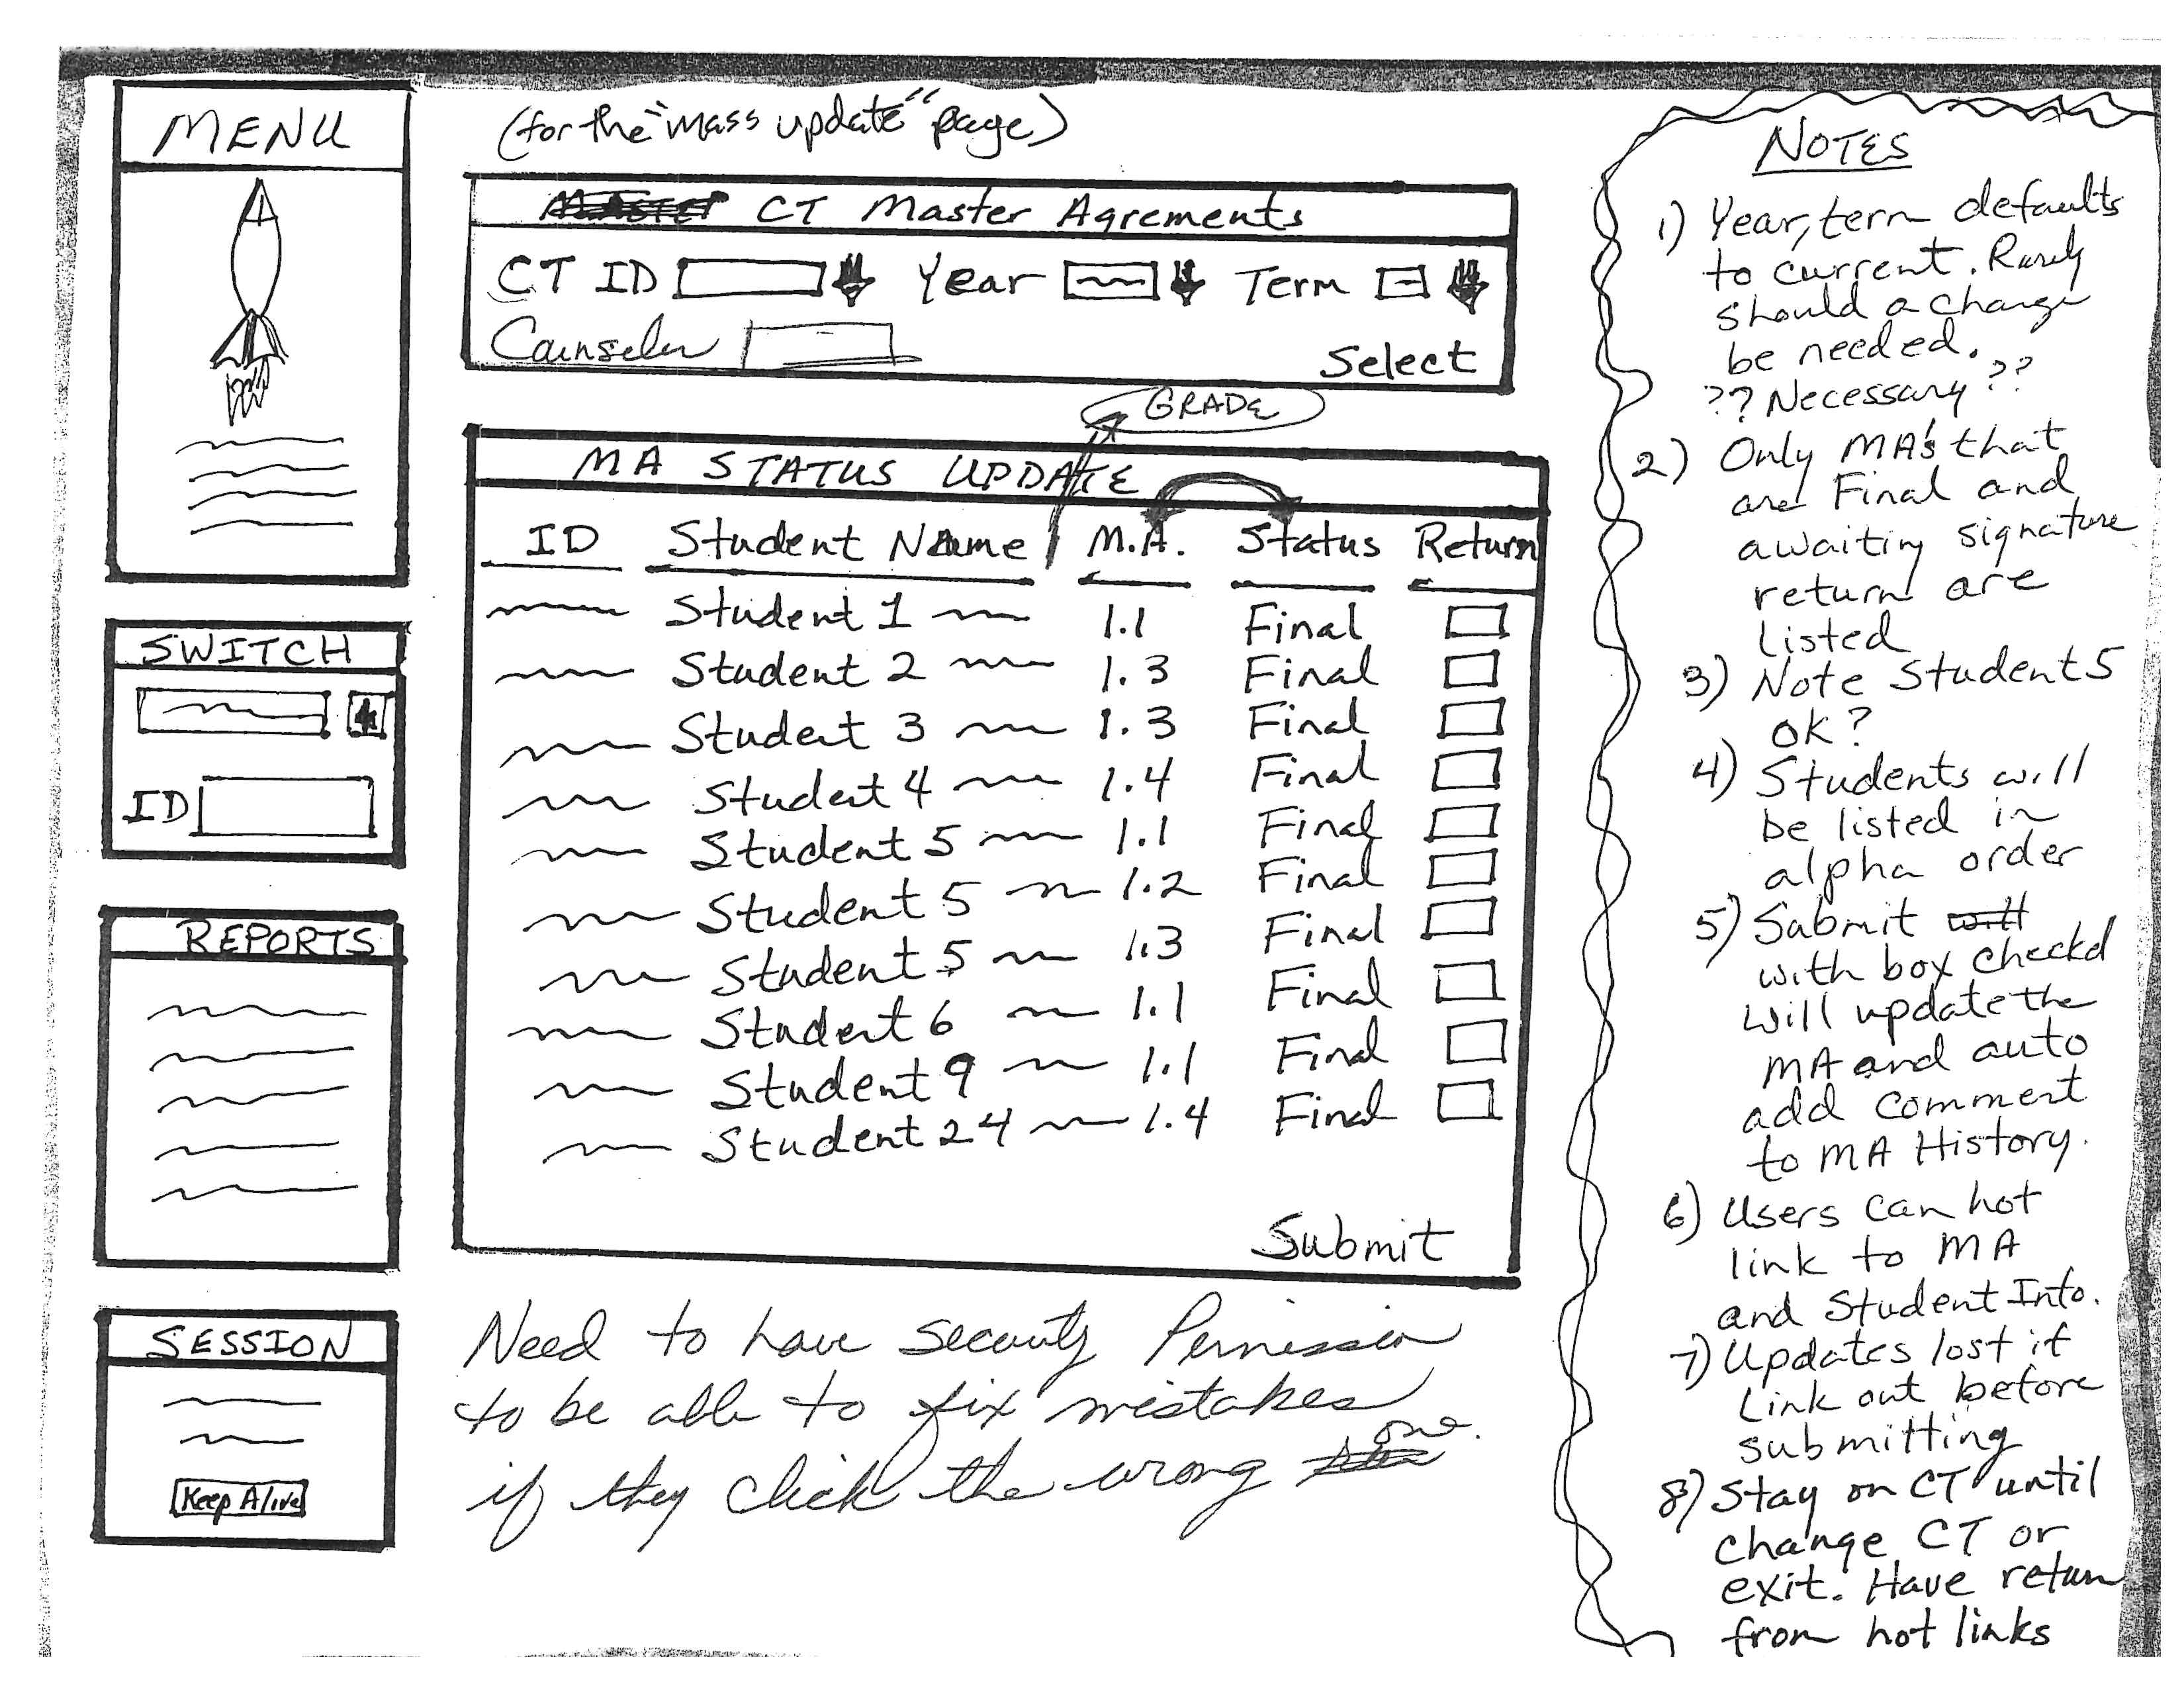 MENU
(for the "mass update" page)
CT Master Agrements
CT ID Year Term
Counselor
Select
GRADE
MA STATUS UPDATE
ID Student Name M.A. Status Return
Student 1 1.1 Final
Student 2 1.3 Final
Student 3 1.3 Final
Student 4 1.4 Final
Student 5 1.1 Final
Student 5 1.2 Final
Student 5 1.3 Final
Student 6 1.1 Final
Student 9 1.1 Final
Student 24 1.4 Final
Submit
SWITCH
ID
REPORTS
SESSION
Keep Alive
Need to have Security Permission
to be able to fix mistakes
if they click the wrong one.
NOTES
1) Year, term defaults
to current. Rarely
should a change
be needed.
?? Necessary ??
2) Only MA's that
are Final and
awaiting signature
return are
listed
3) Note Student 5
ok?
4) Students will
be listed in
alpha order
5) Submit will
with box checkd
will update the
MA and auto
add comment
to MA History.
6) Users can hot
link to MA
and Student Info.
7) Updates lost if
Link out before
submitting
8) Stay on CT until
change CT or
exit. Have return
from hot links